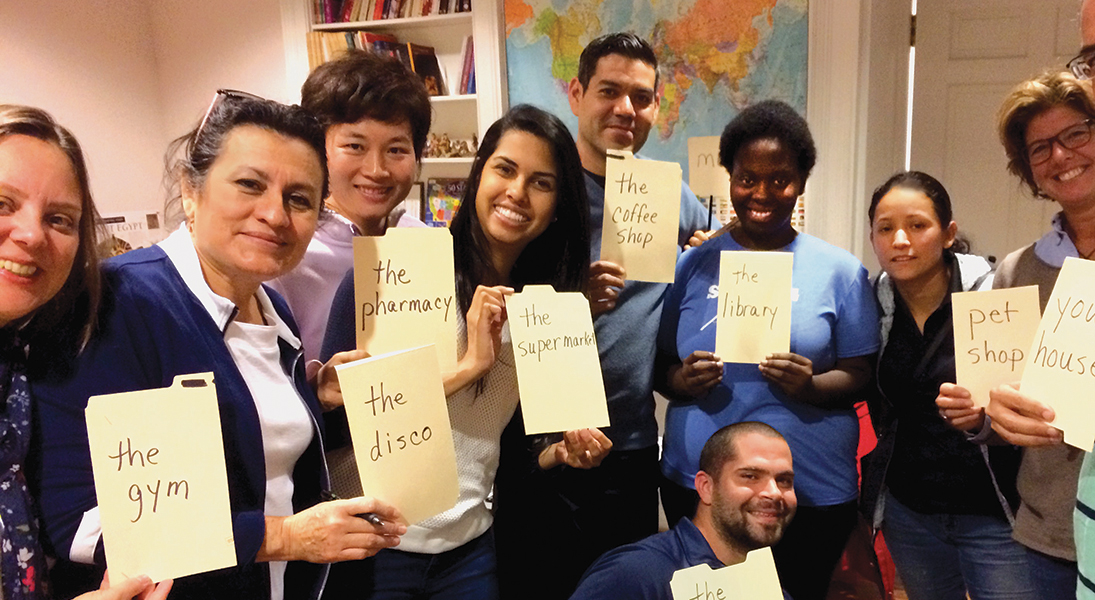 the
gym
the
pharmacy
the
disco
the
supermarket
the
coffee
shop
the
library
pet
shop
you
house
the